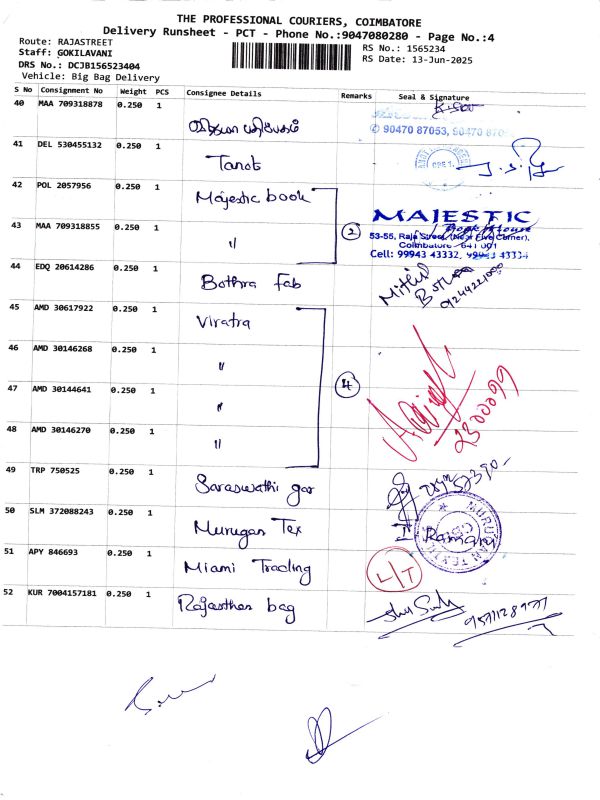 THE PROFESSIONAL COURIERS, COIMBATORE
Delivery Runsheet - PCT - Phone No.:9047080280 - Page No.:4
Route: RAJASTREET
RS No.: 1565234
Staff: GOKILAVANI
RS Date: 13-Jun-2025
DRS No.: DCJB156523404
Vehicle: Big Bag Delivery
S No Consignment No Weight PCS Consignee Details Remarks Seal & Signature
40 MAA 709318878 0.250 1
✆ 90470 87053, 90470
41 DEL 530455132 0.250 1 Tanot
42 POL 2057956 0.250 1 Majestic book
MAJESTIC
Book House
43 MAA 709318855 0.250 1 " 2
53-55, Raja Street, (Near Five Corner),
Coimbatore - 641 001
Cell: 99943 43332, 99943 43334
44 EDQ 20614286 0.250 1 Bothra Fab
Mithil
45 AMD 30617922 0.250 1 Viratra
46 AMD 30146268 0.250 1 "
47 AMD 30144641 0.250 1 " 4
2300099
48 AMD 30146270 0.250 1 "
49 TRP 750525 0.250 1 Saraswathi gar
50 SLM 372088243 0.250 1 Murugan Tex
MURUGAN TEXTILE
51 APY 846693 0.250 1 Miami Trading L/T
52 KUR 7004157181 0.250 1 Rajasthan bag